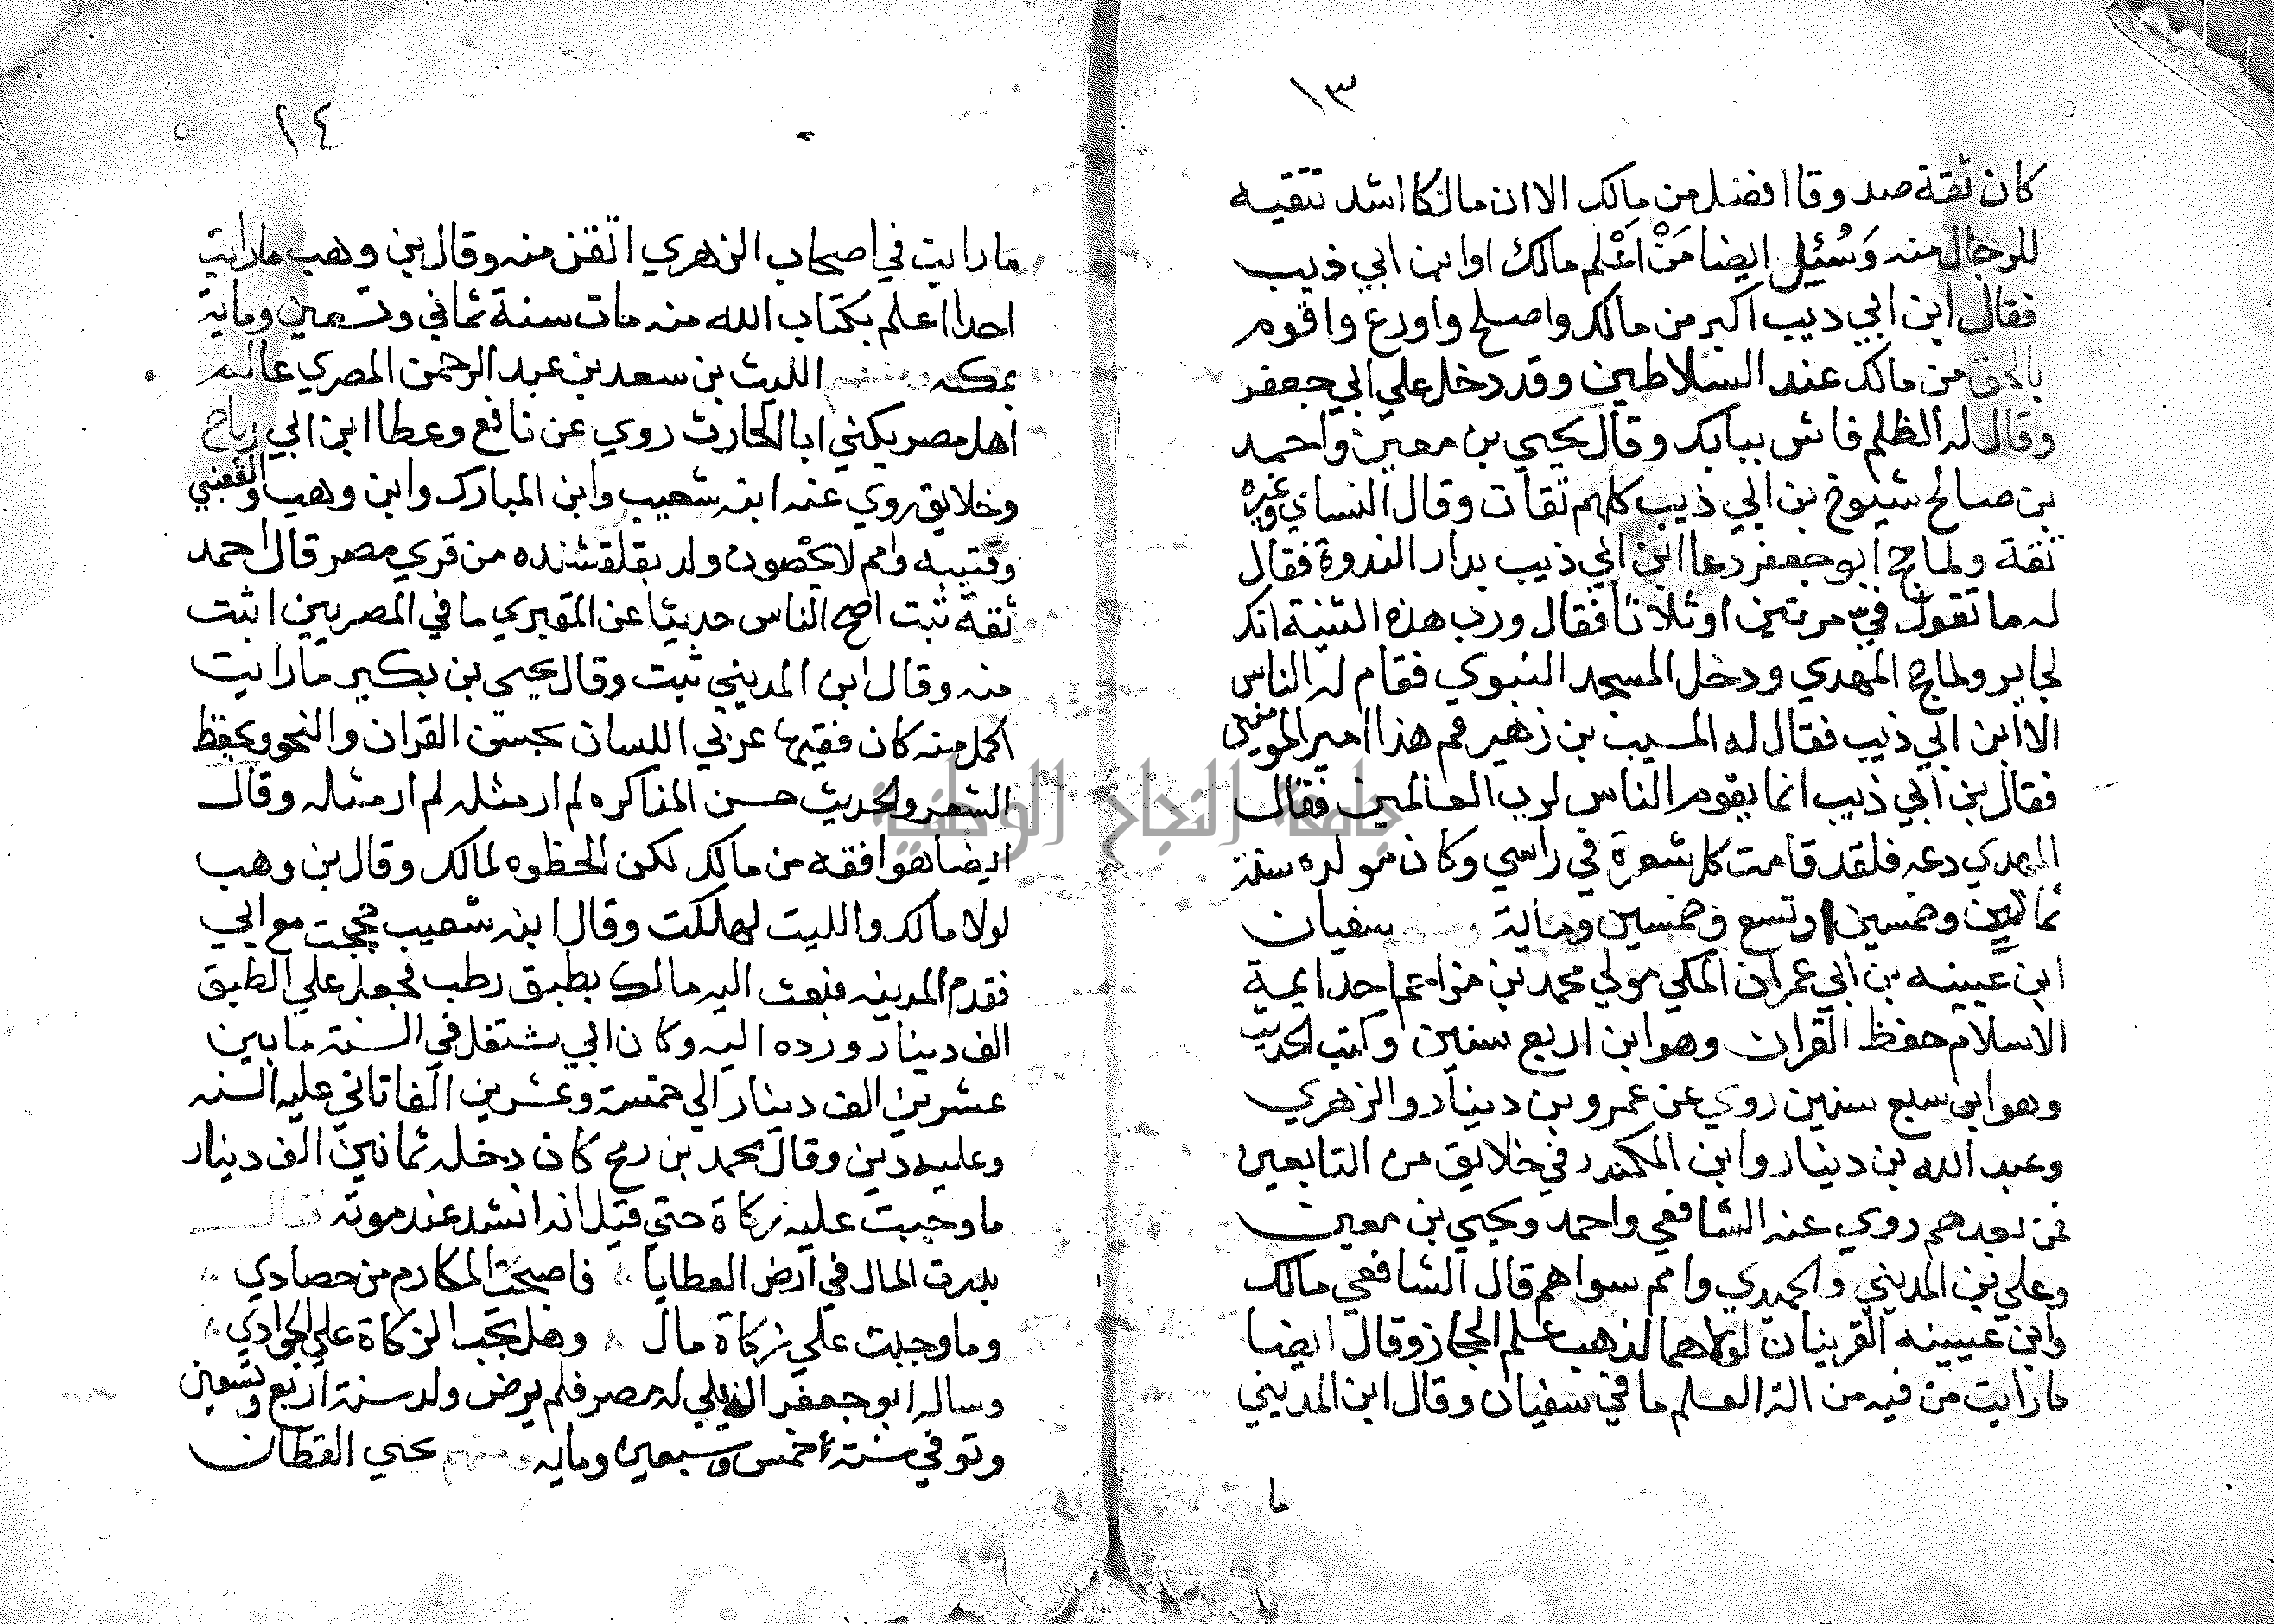 ١٣
كان ثقة صدوقا افضل من مالك الا ان مالكا اشد تنقيه
للرجال منه وَسُئِل ايضا مَنْ اَعْلم مالك او ابن ابي ذيب
فقال ابن ابي ديب اكبر من مالك واصلح واورع واقوم
بالحق من مالك عند السلاطين وقد دخل علي ابي جعفر
وقال له الظلم فاش ببابك وقال يحيي بن معين واحمد
بن صالح شيوخ بن ابي ذيب كلهم ثقات وقال النساي وغيره
ثقة ولما حج ابو جعفر دعا ابن ابي ذيب بدار الندوة فقال
له ما تقول فيّ مرتين او ثلاثا فقال ورب هذه البنية انك
لجاير ولما حج المهدي ودخل المسجد النبوي فقام له الناس
الا ابن ابي ذيب فقال له المسيب بن زهير قم هذا امير المومنين
فقال بن ابي ذيب انما يقوم الناس لرب العالمين فقال
المهدي دعه فلقد قامت كل شعرة في راسي وكان مولده سنة
ثمانين وخمسين او تسع وخمسين وماية سفيان
ابن عيينه بن ابي عمران المكي مولي محمد بن مزاحم احد ايمة
الاسلام حفظ القران وهو ابن اربع سنين وكتب الحديث
وهو ابن سبع سنين روي عن عمرو بن دينار والزهري
وعبد الله بن دينار وابن المكندر في خلايق من التابعين
فمن بعدهم روي عنه الشافعي واحمد ويحيي بن معين
وعلي بن المديني والحميدي وامم سواهم قال الشافعي مالك
وابن عيينه القرينان لولاهما لذهب علم الحجاز وقال ايضا
ما رايت من فيه من الة العلم ما في سفيان وقال ابن المديني
ما
١٤
ما رايت في اصحاب الزهري اتقن منه وقال بن وهب ما رايت
احدا اعلم بكتاب الله منه مات سنة ثماني وتسعين وماية
بمكه الليث بن سعد بن عبد الرحمن المصري عالم
اهل مصر يكني ابا الحارث روي عن نافع وعطا ابن ابي رباح
وخلايق روي عنه ابنه شعيب وابن المبارك وابن وهب والقعنبي
وقتيبه وامم لا يحصون ولد بقلقشنده من قري مصر قال احمد
ثقة ثبت اصح الناس حديثا عن المقبري ما في المصريين اثبت
منه وقال ابن المديني ثبت وقال يحيي بن بكير ما رايت
اكمل منه كان فقيها عربي اللسان يحسن القران والنحو ويحفظ
الشعر والحديث حسن المذاكره لم ار مثله لم ار مثله وقال
ايضا هو افقه من مالك لكن الحظوه لمالك وقال بن وهب
لولا مالك والليث لهلكت وقال ابنه شعيب حججت مع ابي
فقدم المدينه فبعث اليه مالك بطبق رطب فجعل علي الطبق
الف دينار ورده اليه وكان ابي يشتغل في السنة ما بين
عشرين الف دينار الي خمسة وعشرين الفا تاتي عليه السنه
وعليه دين وقال محمد بن رمح كان دخله ثمانين الف دينار
ما وجبت عليه زكاة حتي قيل انه انشد عند موته فقال
بدرت المال في ارض العطايا فاصبحت المكارم من حصادي
وما وجبت علي زكاة مال وهل تجب الزكاة علي الجوادي
وساله ابو جعفر ان يلي له مصر فلم يرض ولد سنة اربع وتسعين
وتوفي سنة خمس وسبعين ومايه ومنهم يحيي القطان
جامعة النجاح الوطنية